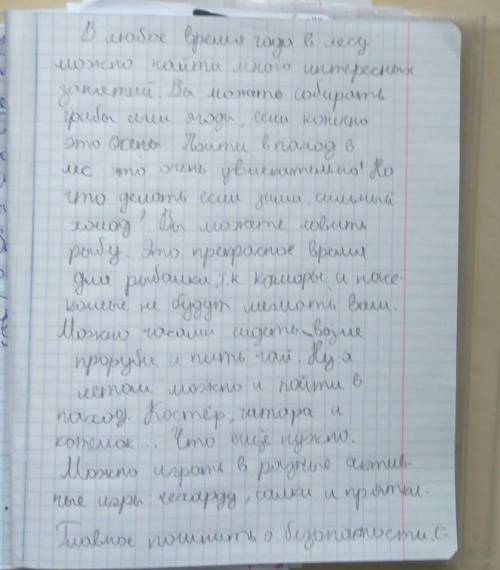 В любое время года в лесу
можно найти много интересных
занятий. Вы можете собирать
грибы или ягоды, если конечно
это осень. Пойти в паход в
лес это очень увлекательно! Но
что делать если зима, сильный
холод? Вы можете ловить
рыбу. Это прекрасное время
для рыбалки, т.к каморы и насе-
комые не будут мешать вам.
Можно часами сидеть возле
проруби и пить чай. Ну а
летом можно и пойти в
паход. Костёр, гитара и
котелок... Что ещё нужно.
Можно играть в разные актив-
ные игры чехарду, салки и прятки.
Главное помнить о безопасности. (=